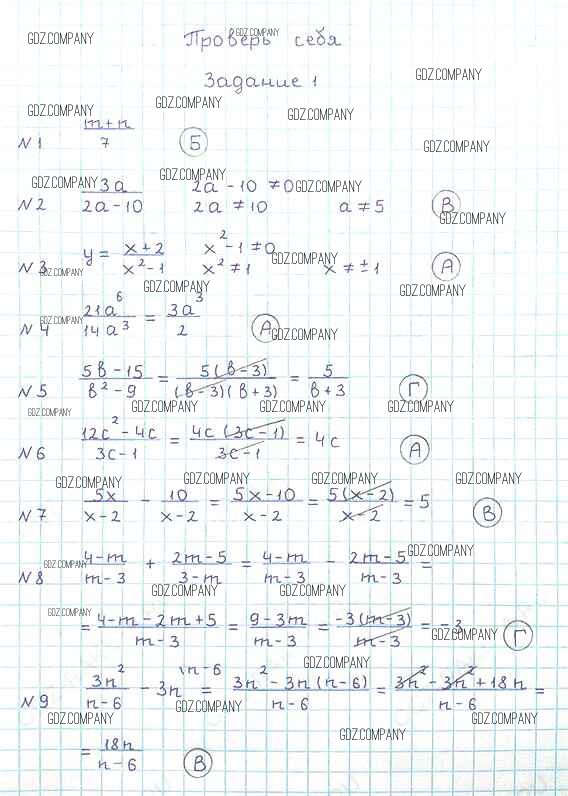 Проверь себя
Задание 1
№1 (m+n)/7 Б
№2 3a/(2a-10) 2a-10 ≠ 0 2a ≠ 10 a ≠ 5 В
№3 y = (x+2)/(x²-1) x²-1 ≠ 0 x² ≠ 1 x ≠ ±1 А
№4 21a⁶/14a³ = 3a³/2 А
№5 (5b-15)/(b²-9) = 5(b-3)/((b-3)(b+3)) = 5/(b+3) Г
№6 (12c²-4c)/(3c-1) = 4c(3c-1)/(3c-1) = 4c А
№7 5x/(x-2) - 10/(x-2) = (5x-10)/(x-2) = 5(x-2)/(x-2) = 5 В
№8 (4-m)/(m-3) + (2m-5)/(3-m) = (4-m)/(m-3) - (2m-5)/(m-3) =
= (4-m-2m+5)/(m-3) = (9-3m)/(m-3) = -3(m-3)/(m-3) = -3 Г
№9 3n²/(n-6) - 3n \n-6 = (3n²-3n(n-6))/(n-6) = (3n²-3n²+18n)/(n-6) =
= 18n/(n-6) В
GDZ.COMPANY